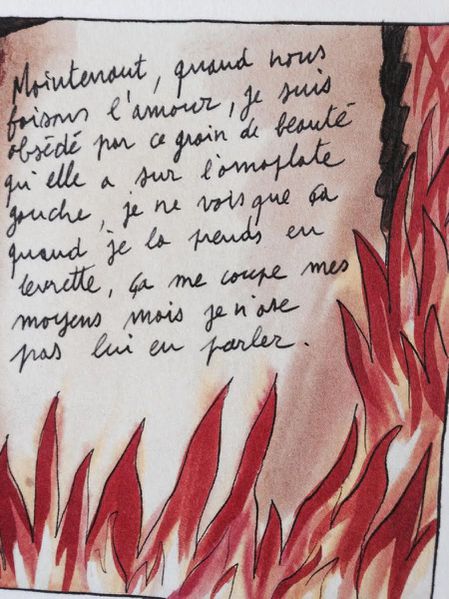 Maintenant, quand nous
faisons l'amour, je suis
obsédé par ce grain de beauté
qu'elle a sur l'omoplate
gauche, je ne vois que ça
quand je la prends en
levrette, ça me coupe mes
moyens mais je n'ose
pas lui en parler.